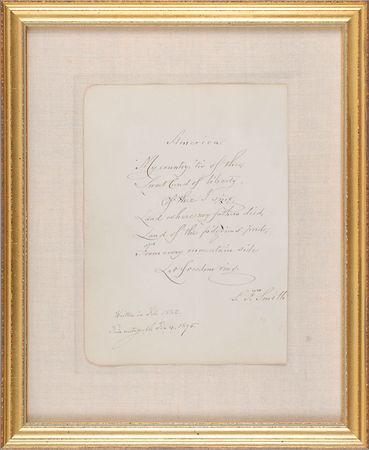 America.
My country, 'tis of thee
Sweet land of liberty,
Of thee I sing;
Land where my fathers died,
Land of the pilgrims' pride,
From every mountain side
Let freedom ring.
S. F. Smith
Written in Feb. 1832.
autograph 1895.